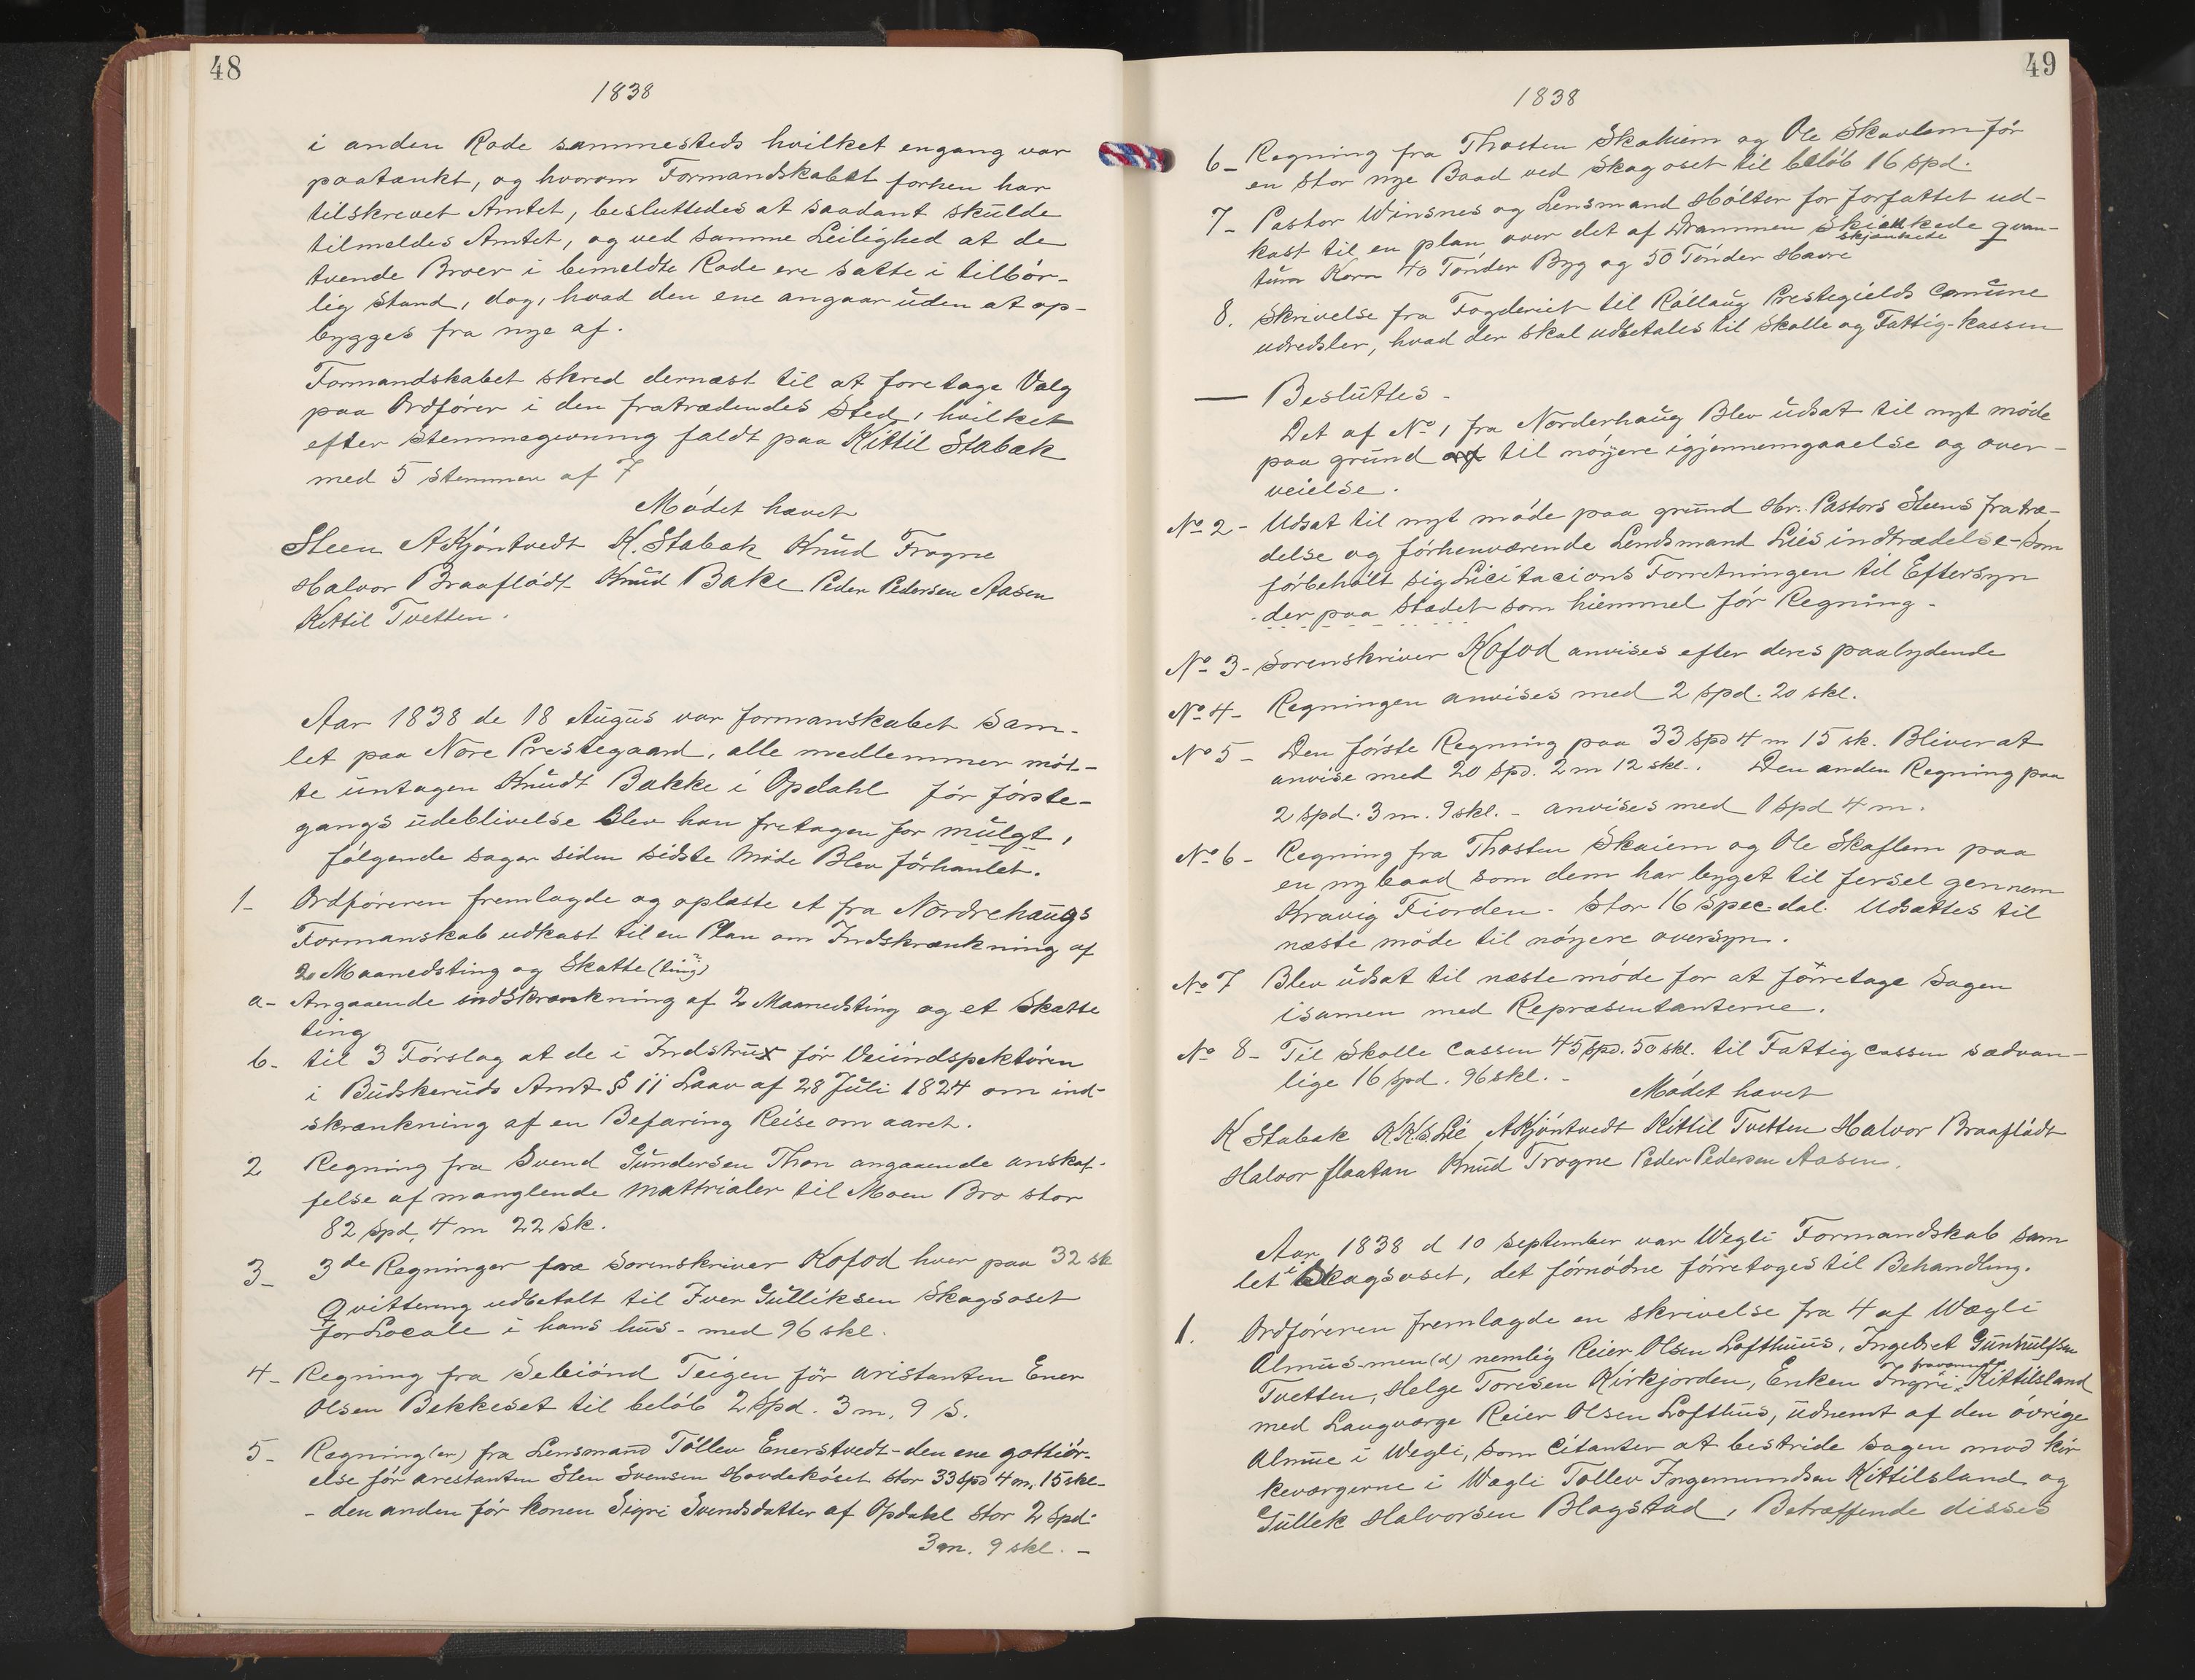 48
1838
i anden Rode sammesteds hvilket engang var
paatænkt, og hvorom Formandskabet forhen har
tilskrevet Amtet, besluttedes at saadant skulde
tilmeldes Amtet, og ved samme Leilighed at de
tvende Broer i bemeldte Rode ere satte i tilbør-
lig Stand, dog, hvad den ene angaar uden at op-
bygges fra nye af.
Formandskabet skred dernæst til at foretage Valg
paa Ordfører i den fratrædendes Sted, hvilket
efter Stemmegivning faldt paa Kittil Stabæk
med 5 stemmer af 7
Mødet hævet
Steen AKjøntvedt K. Stabæk Knud Frogne
Halvor Braaflådt Knud Bake Peder Pedersen Aasen
Kittil Tvetten.
Aar 1838 de 18 Augus var formanskabet Sam-
let paa Nore Prestegaard, alle medlemmer møt-
te untagen Knudt Bakke i Opdahl før første-
gangs udeblivelse Blev han fretagen for mulgt,
følgende sager siden sidste Møde Blev førhanlet.
1- Ordføreren fremlagde og oplæste et fra Nordrehaugs
Formanskab udkast til en Plan om Indskrænkning af
2 Maanedsting og Skatte (ting?)
a- Angaaende indskrænkning af 2 Maanedsting og et Skatte
ting
b- til 3 Førslag at de i Indstrux før Veiindspektøren
i Budskeruds Amt § 11 Laav af 28 Juli 1824 om ind-
skrænkning af en Befaring Reise om aaret.
2 Regning fra Svend Gundersen Thon angaaende anskaf-
felse af manglende Mattrialer til Moen Bro stor
82 spd, 4 m 22 Sk.
3- 3de Regninger fra Sorenskriver Kofod hver paa 32 sk
Qvittering udbetalt til Iver Gulliksen Skagsoset
for Locale i hans hus - med 96 skl.
4- Regning fra Sebiønd Teigen før aristanten Ener
Olsen Bekkeset til beløb 2 Spd. 3 m. 9 S.
5- Regning(er) fra Lensmand Tøllev Enerstvedt - den ene gottiør-
else før arestanten Sten Svensen Hovdekøset stor 33 spd 4 m. 15 skl-
- den anden før konen Sigri Svendsdatter af Opdahl stor 2 spd.
3 m. 9 skl. -
49
1838
6- Regning fra Thosten Skahiem og Ole Skavlem før
en stor nye Baad ved Skagoset til beløb 16 spd.
7- Pastor Winsnes og Lensmand Hølter for forfattet ud-
kast til en plan over det af Drammen Skienkede qvan-
skjænkede
tum Korn 40 Tønder Byg og 50 Tønder Havre
8. Skrivelse fra Fogderiet til Rollaug Prestegields Comune
udredsler, hvad der skal udbetales til Skolle og Fattig-kassen
— Besluttes -
Det af No 1 fra Norderhaug Blev udsat til nyt møde
paa grund af til nøyere igjennemgaaelse og over-
veielse.
No 2- Udsat til nyt møde paa grund Hr. Pastors Steens fratræ-
delse og førhenværende Lendsmand Lies indtrædelse - som
førbeholt sig Licitacions Forretningen til Eftersyn
der paa Stædet som hiemmel før Regning -
No 3- Sorenskriver Kofod anvises efter deres paalydende
No 4- Regningen anvises med 2 spd. 20 skl.
No 5- Den første Regning paa 33 spd 4 m 15 sk. Bliver at
anvise med 20 Spd. 2 m 12 skl.. Den anden Regning paa
2 spd. 3 m. 9 skl. - anvises med 1 spd 4 m.
No 6- Regning fra Thosten Skaiem og Ole Skaflem paa
en ny baad som dem har byget til fersel gennem
Kravig Fiorden - Stor 16 Spec. dal. Udsættes til
næste møde til nøyere oversyn.
No 7 Blev udsat til næste møde for at førretage Sagen
isamen med Repræsentanterne.
No 8- Til Skolle Cassen 45 spd. 50 skl. til Fattig cassen sædvan-
lige 16 spd. 96 skl. -
Mødet hævet
K Stabæk K.K.S. Lie AKjøntvedt Kittil Tvetten Halvor Braaflådt
Halvor flaatan Knud Trogne Peder Pedersen Aasen.
Aar 1838 d 10 September var Wegli Formandskab sam
let i Skagsoset, det førnødne førretoges til Behandling.
1. Ordføreren fremlagde en skrivelse fra 4 af Wægli
Almus-men(d) nemlig Reier Olsen Lofthuus, Ingebret Gunnulfsen
Tvetten, Helge Toresen Kirkjorden, Enken Ingri Kittilsland
med Laugværge Reier Olsen Lofthus, udnemt af den øvrige
Almue i Wegli, som Citanter at bestride sagen mod kir
keværgerne i Wægli Tollev Ingemundsen Kittilsland og
Gullek Halvorsen Blagstad, Betræffende disses